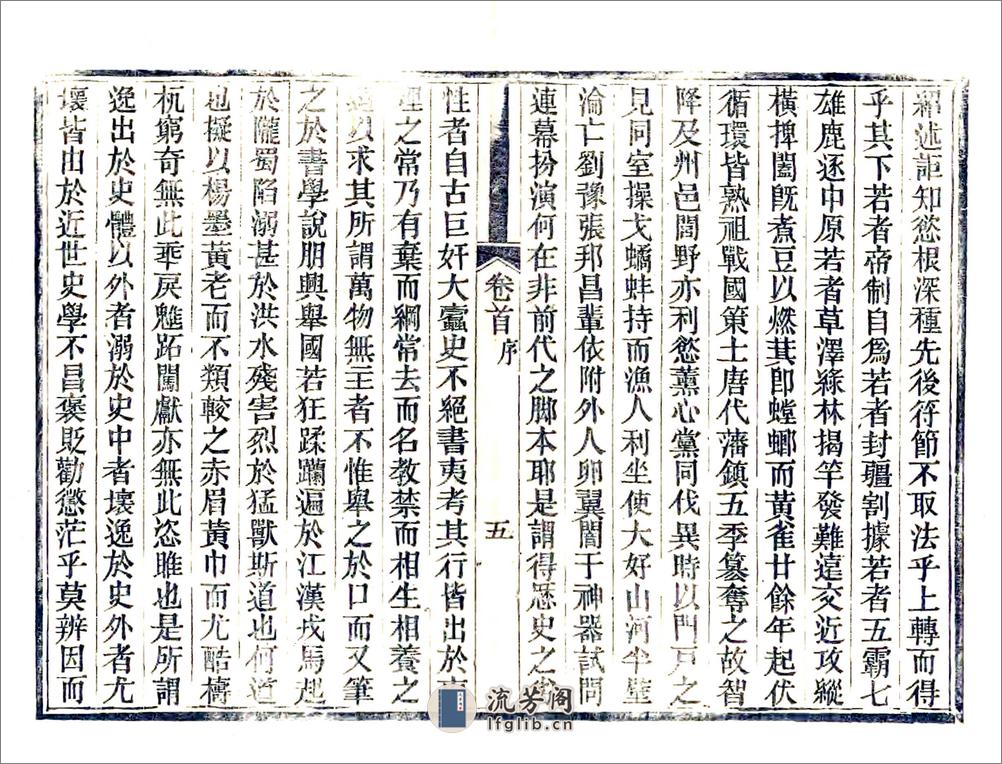 紹述詎知慾根深種先後符節不取法乎上轉而得
乎其下若者帝制自爲若者封疆割據若者五霸七
雄鹿逐中原若者草澤綠林揭竿發難遠交近攻縱
橫捭闔旣煮豆以燃萁卽螳螂而黃雀廿餘年起伏
循環皆熟祖戰國策士唐代藩鎮五季簒奪之故智
降及州邑閭野亦利慾薰心黨同伐異時以門戸之
見同室操戈蟠蚌持而漁人利坐使大好山河半壁
淪亡劉豫張邦昌輩依附外人卵翼闇于神器試問
連幕扮演何在非前代之脚本耶是謂得惡史之
卷首 序 五
性者自古巨奸大蠧史不絕書夷考其行皆出於
理之常乃有棄而綱常去而名教禁而相生相養之
以求其所謂萬物無主者不惟舉之於口而又筆
之於書學說朋興舉國若狂蹂躪遍於江漢戎馬起
於隴蜀陷溺甚於洪水殘害烈於猛獸斯道也何道
也擬以楊墨黃老而不類較之赤眉黃巾而尤酷檮
杌窮奇無此乖戾魋跖闖獻亦無此恣睢也是所謂
逸出於史體以外者溺於史中者壞逸於史外者尤
壞皆由於近世史學不昌褒貶勸懲茫乎莫辨因而
流芳閣
lfglib.cn